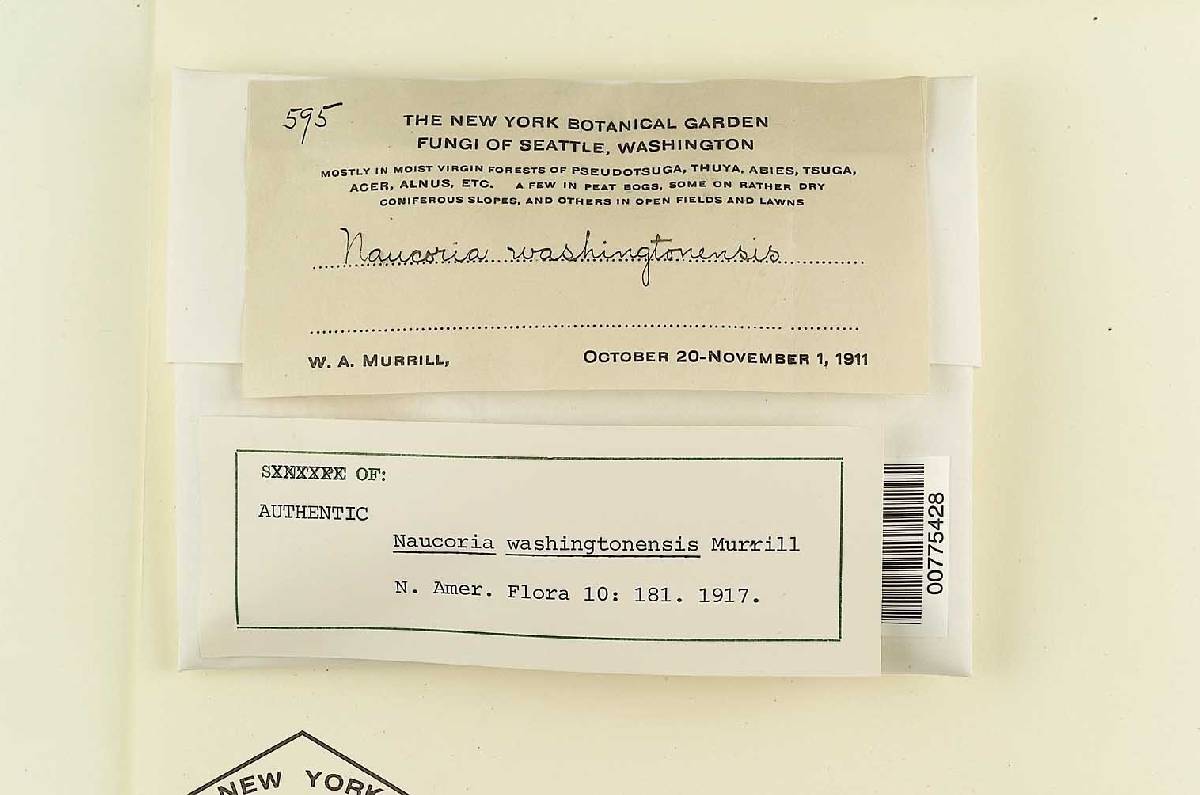 595
THE NEW YORK BOTANICAL GARDEN
FUNGI OF SEATTLE, WASHINGTON
MOSTLY IN MOIST VIRGIN FORESTS OF PSEUDOTSUGA, THUYA, ABIES, TSUGA,
ACER, ALNUS, ETC. A FEW IN PEAT BOGS, SOME ON RATHER DRY
CONIFEROUS SLOPES, AND OTHERS IN OPEN FIELDS AND LAWNS
Naucoria washingtonensis
W. A. MURRILL, OCTOBER 20-NOVEMBER 1, 1911
OF:
AUTHENTIC
Naucoria washingtonensis Murrill
N. Amer. Flora 10: 181. 1917.
00775428
NEW YORK